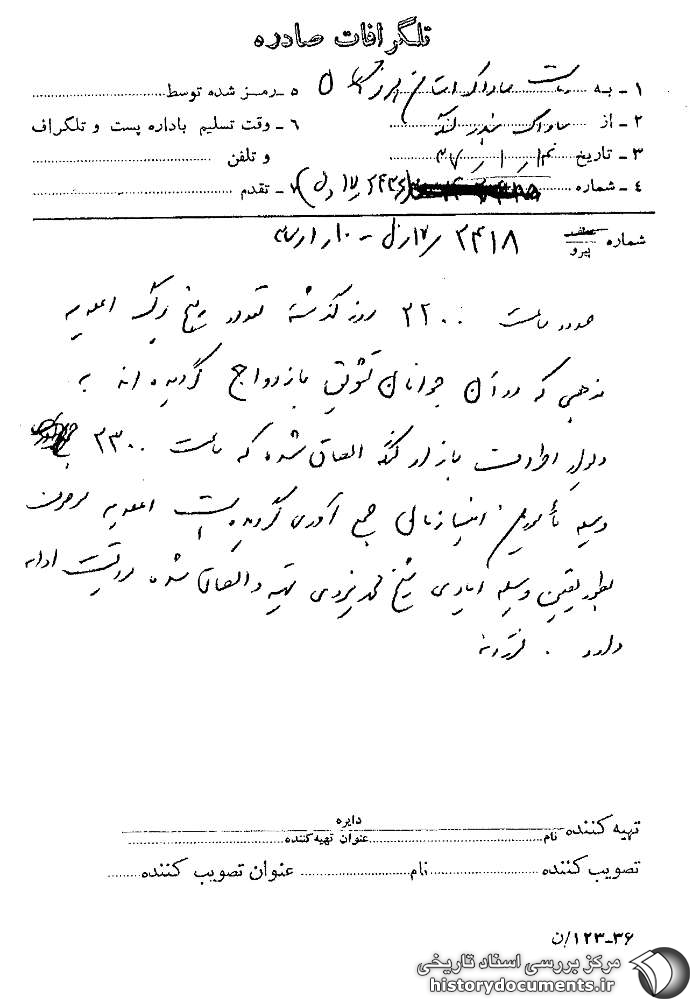 تلگرافات صادره
۱ - به ریاست ساواک استان
۵ - رمز شده توسط
۲ - از ساواک بندر لنگه
۶ - وقت تسلیم باداره پست و تلگراف
۳ - تاریخ
و تلفن
۴ - شماره
۷ - تقدم
شماره
پیرو
۲۴۱۸
حدود ساعت ۲۲۰۰ روز گذشته تعداد پنج برگ اعلامیه
مذهبی که در آن جوانان تشویق بازدواج گردیده اند به
دیوار اطراف بازار لنگه الصاق شده که ساعت ۲۳۰۰
وسیله مأمورین انتظامی جمع آوری گردیده است اعلامیه
بطور یقین وسیله ایادی شیخ محمد تهیه و الصاق شده مراقبت ادامه
دارد .
دایره
تهیه کننده
نام عنوان تهیه کننده
تصویب کننده نام عنوان تصویب کننده
۳۶-۱۲۳/ن
مرکز بررسی اسناد تاریخی
historydocuments.ir